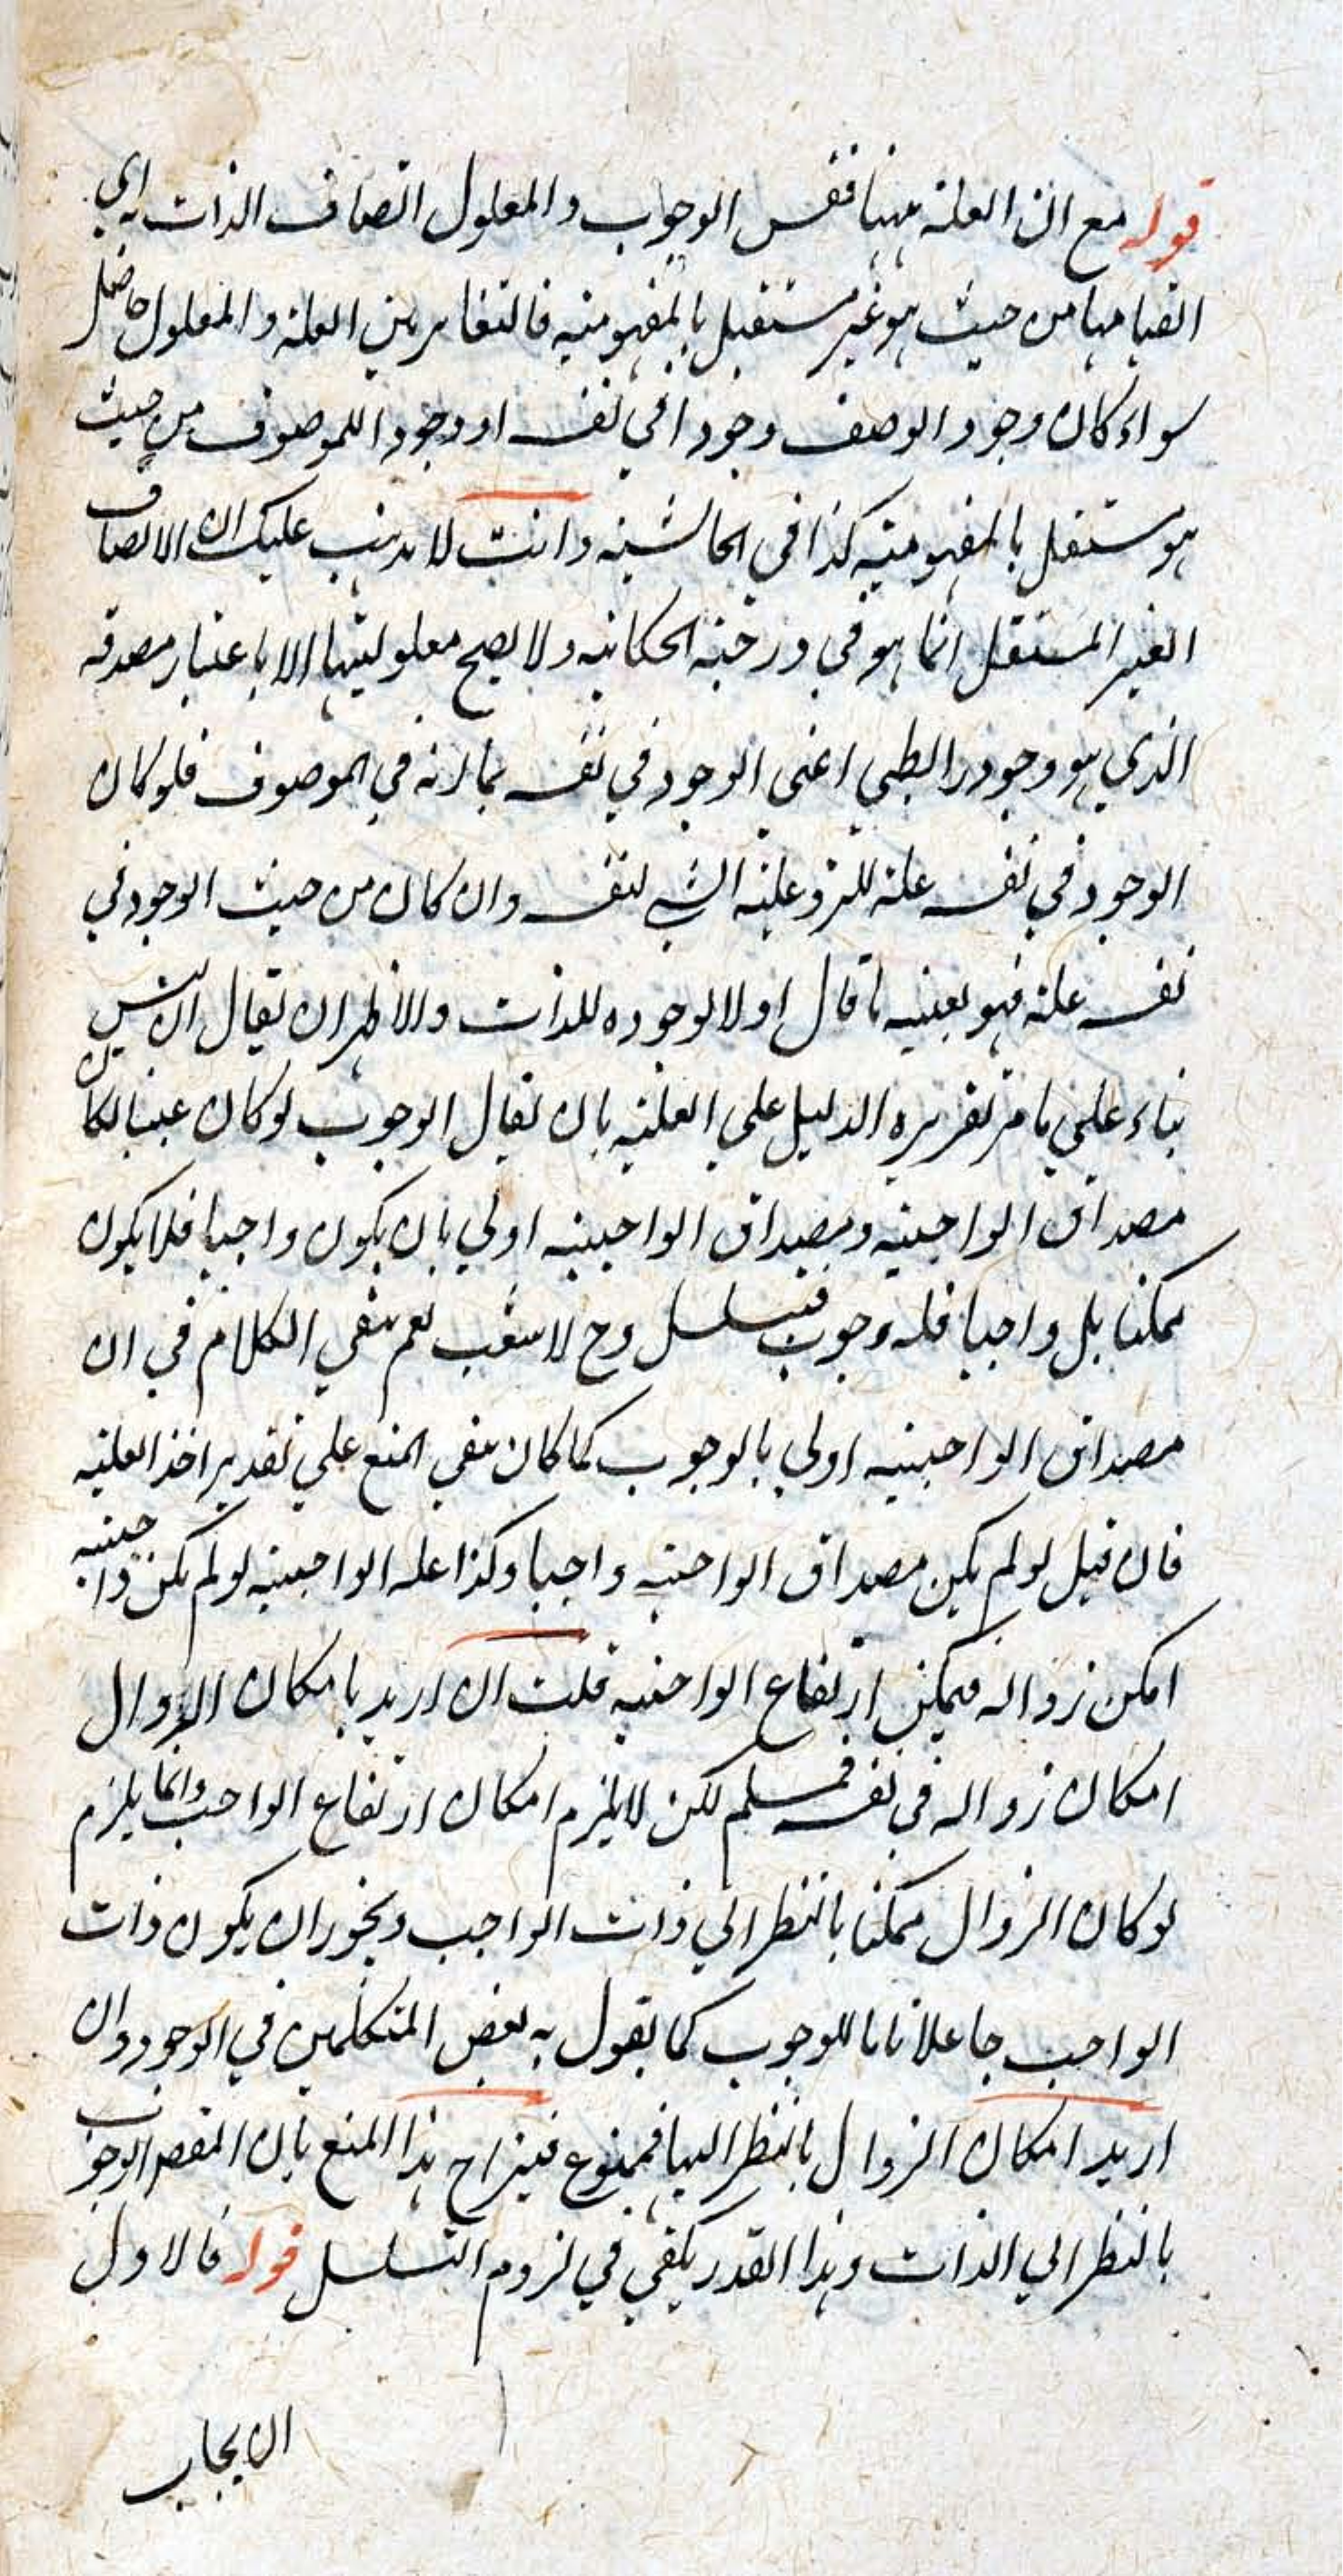 قوله مع ان العلة ههنا نفس الوجوب والمعلول اتصاف الذات به اي
انضيامها من حيث هو غير مستقل بالمفهومية فالتغاير بين العلة والمعلول حاصل
سواء كان وجود الوصف وجودا في نفسه او وجودا للموصوف من حيث
هو مستقل بالمفهومية كذا في الحاشية وانت لا يذهب عليك ان الاتصاف
الغير المستقل انما هو في درجة الحكاية ولا يصح معلوليتها الا باعتبار مصدقه
الذي هو وجود رابطي اعني الوجود في نفسه بما انه في الموصوف فلو كان
الوجود في نفسه علة للزم علية الشي لنفسه وان كان من حيث الوجود في
نفسه علة فهو بعينه ما قال اولا لوجوده للذات والاظهر ان يقال ان ليس
بناء علي ما مر تقريره الدليل علي العلية بان يقال الوجوب لو كان عينا لكان
مصداق الواجبية ومصداق الواجبية اولي بان يكون واجبا فلا يكون
ممكنا بل واجبا فله وجوب فيتسلسل وح لا شغب نعم بقي الكلام في ان
مصداق الواجبية اولي بالوجوب كما كان بقي المنع علي تقدير اخذ العلية
فان قيل لو لم يكن مصداق الواجبية واجبا وكذا علة الواجبية لو لم يكن واجبية
امكن زواله فيمكن ارتفاع الواجبية قلت ان اريد بامكان الزوال
امكان زواله في نفسه فمسلم لكن لا يلزم امكان ارتفاع الواجب وانما يلزم
لو كان الزوال ممكنا بالنظر الي ذات الواجب ويجوز ان يكون ذات
الواجب جاعلا تاما للوجوب كما يقول به بعض المتكلمين في الوجود وان
اريد امكان الزوال بالنظر اليها فممنوع فينزاح هذا المنع بان المقصد الوجوب
بالنظر الي الذات وهذا القدر يكفي في لزوم التسلسل قوله فالاول
الايجاب